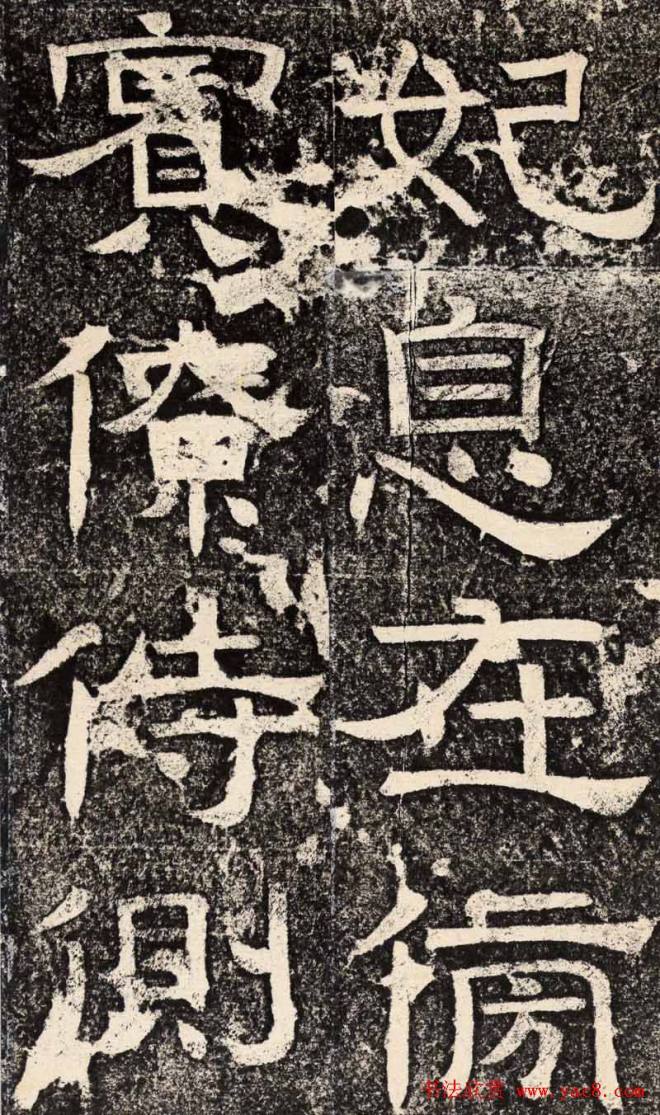 妃息在傍
賓僚侍側
书法欣赏 www.yac8.com